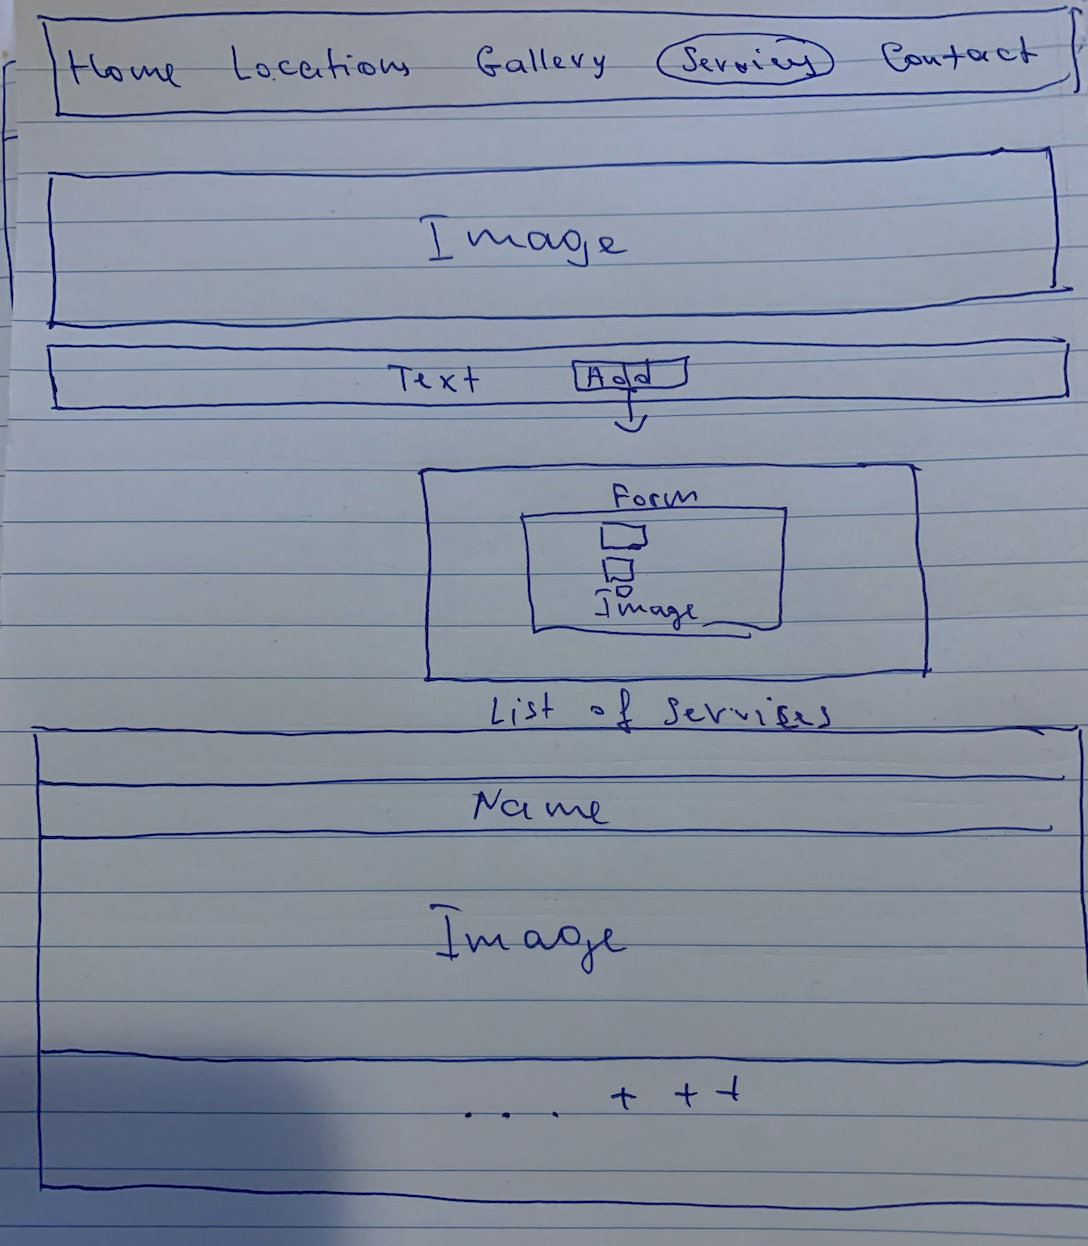 Home Locations Gallery Services Contact
Image
Text Add
Form
Image
List of Services
Name
Image
. . . + + +